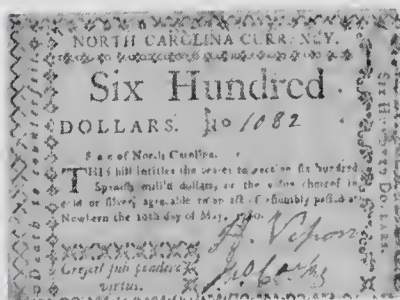 NORTH CAROLINA CURRENCY.
Six Hundred
DOLLARS. No 1082
State of North Carolina.
THIS bill intitles the bearer to receive six hundred
Spanish mill'd dollars, or the value thereof in
gold or silver, agreeable to an act of assembly passed at
Newbern the 10th day of May, 1780.
Crescit sub pondere
virtus.
Death to counterfeit.
Six Hundred Dollars.